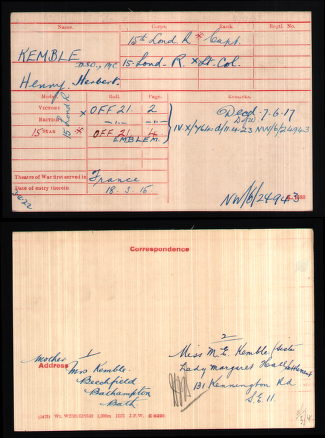 Name. Corps. Rank. Regtl. No.
15th Lond. R * Capt.
KEMBLE D.S.O., MC 15-Lond-R. x Lt. Col.
Henry Herbert.
Medal. Roll. Page. Remarks.
VICTORY x OFF 21. 2
BRITISH -"- -"-
15 STAR * OFF 21. 4
EMBLEM.
15 Lond R
Died 7-6-17
IV X/7640 d/11.4.23 NW/6/24943
Theatre of War first served in France
Date of entry therein 18-3-15
NW/6/24943
Correspondence
Mother 1
Address
Mrs Kemble.
Beechfield
Bathampton
Bath
2
Miss M. E. Kemble (Sister
Lady Margaret Hall Settlement
131 Kennington Rd
S.E. 11